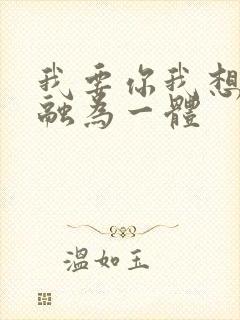 我要你我想
融為一體
溫如玉